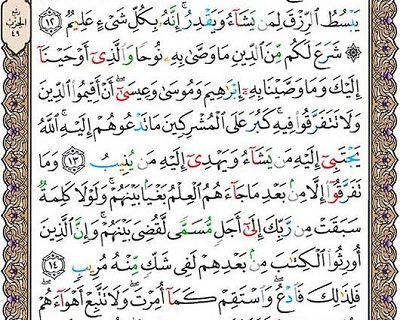 ربع
الحزب
٤٩
يَبْسُطُ ٱلرِّزْقَ لِمَن يَشَآءُ وَيَقْدِرُ ۚ إِنَّهُۥ بِكُلِّ شَىْءٍ عَلِيمٌ ١٢
۞ شَرَعَ لَكُم مِّنَ ٱلدِّينِ مَا وَصَّىٰ بِهِۦ نُوحًا وَٱلَّذِىٓ أَوْحَيْنَآ
إِلَيْكَ وَمَا وَصَّيْنَا بِهِۦٓ إِبْرَٰهِيمَ وَمُوسَىٰ وَعِيسَىٰٓ ۖ أَنْ أَقِيمُوا۟ ٱلدِّينَ
وَلَا تَتَفَرَّقُوا۟ فِيهِ ۚ كَبُرَ عَلَى ٱلْمُشْرِكِينَ مَا تَدْعُوهُمْ إِلَيْهِ ۚ ٱللَّهُ
يَجْتَبِىٓ إِلَيْهِ مَن يَشَآءُ وَيَهْدِىٓ إِلَيْهِ مَن يُنِيبُ ١٣ وَمَا
تَفَرَّقُوٓا۟ إِلَّا مِنۢ بَعْدِ مَا جَآءَهُمُ ٱلْعِلْمُ بَغْيًۢا بَيْنَهُمْ ۚ وَلَوْلَا كَلِمَةٌ
سَبَقَتْ مِن رَّبِّكَ إِلَىٰٓ أَجَلٍ مُّسَمًّى لَّقُضِىَ بَيْنَهُمْ ۚ وَإِنَّ ٱلَّذِينَ
أُورِثُوا۟ ٱلْكِتَٰبَ مِنۢ بَعْدِهِمْ لَفِى شَكٍّ مِّنْهُ مُرِيبٍ ١٤
فَلِذَٰلِكَ فَٱدْعُ ۖ وَٱسْتَقِمْ كَمَآ أُمِرْتَ ۖ وَلَا تَتَّبِعْ أَهْوَآءَهُمْ